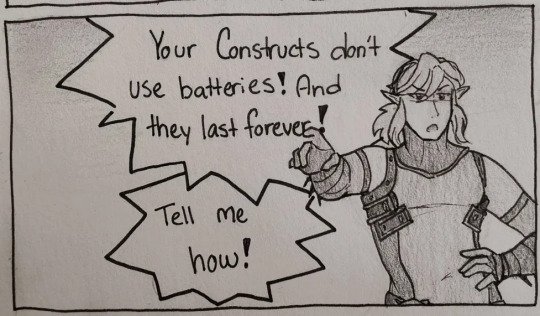 Your Constructs don't
use batteries! And
they last forever!
Tell me
how!